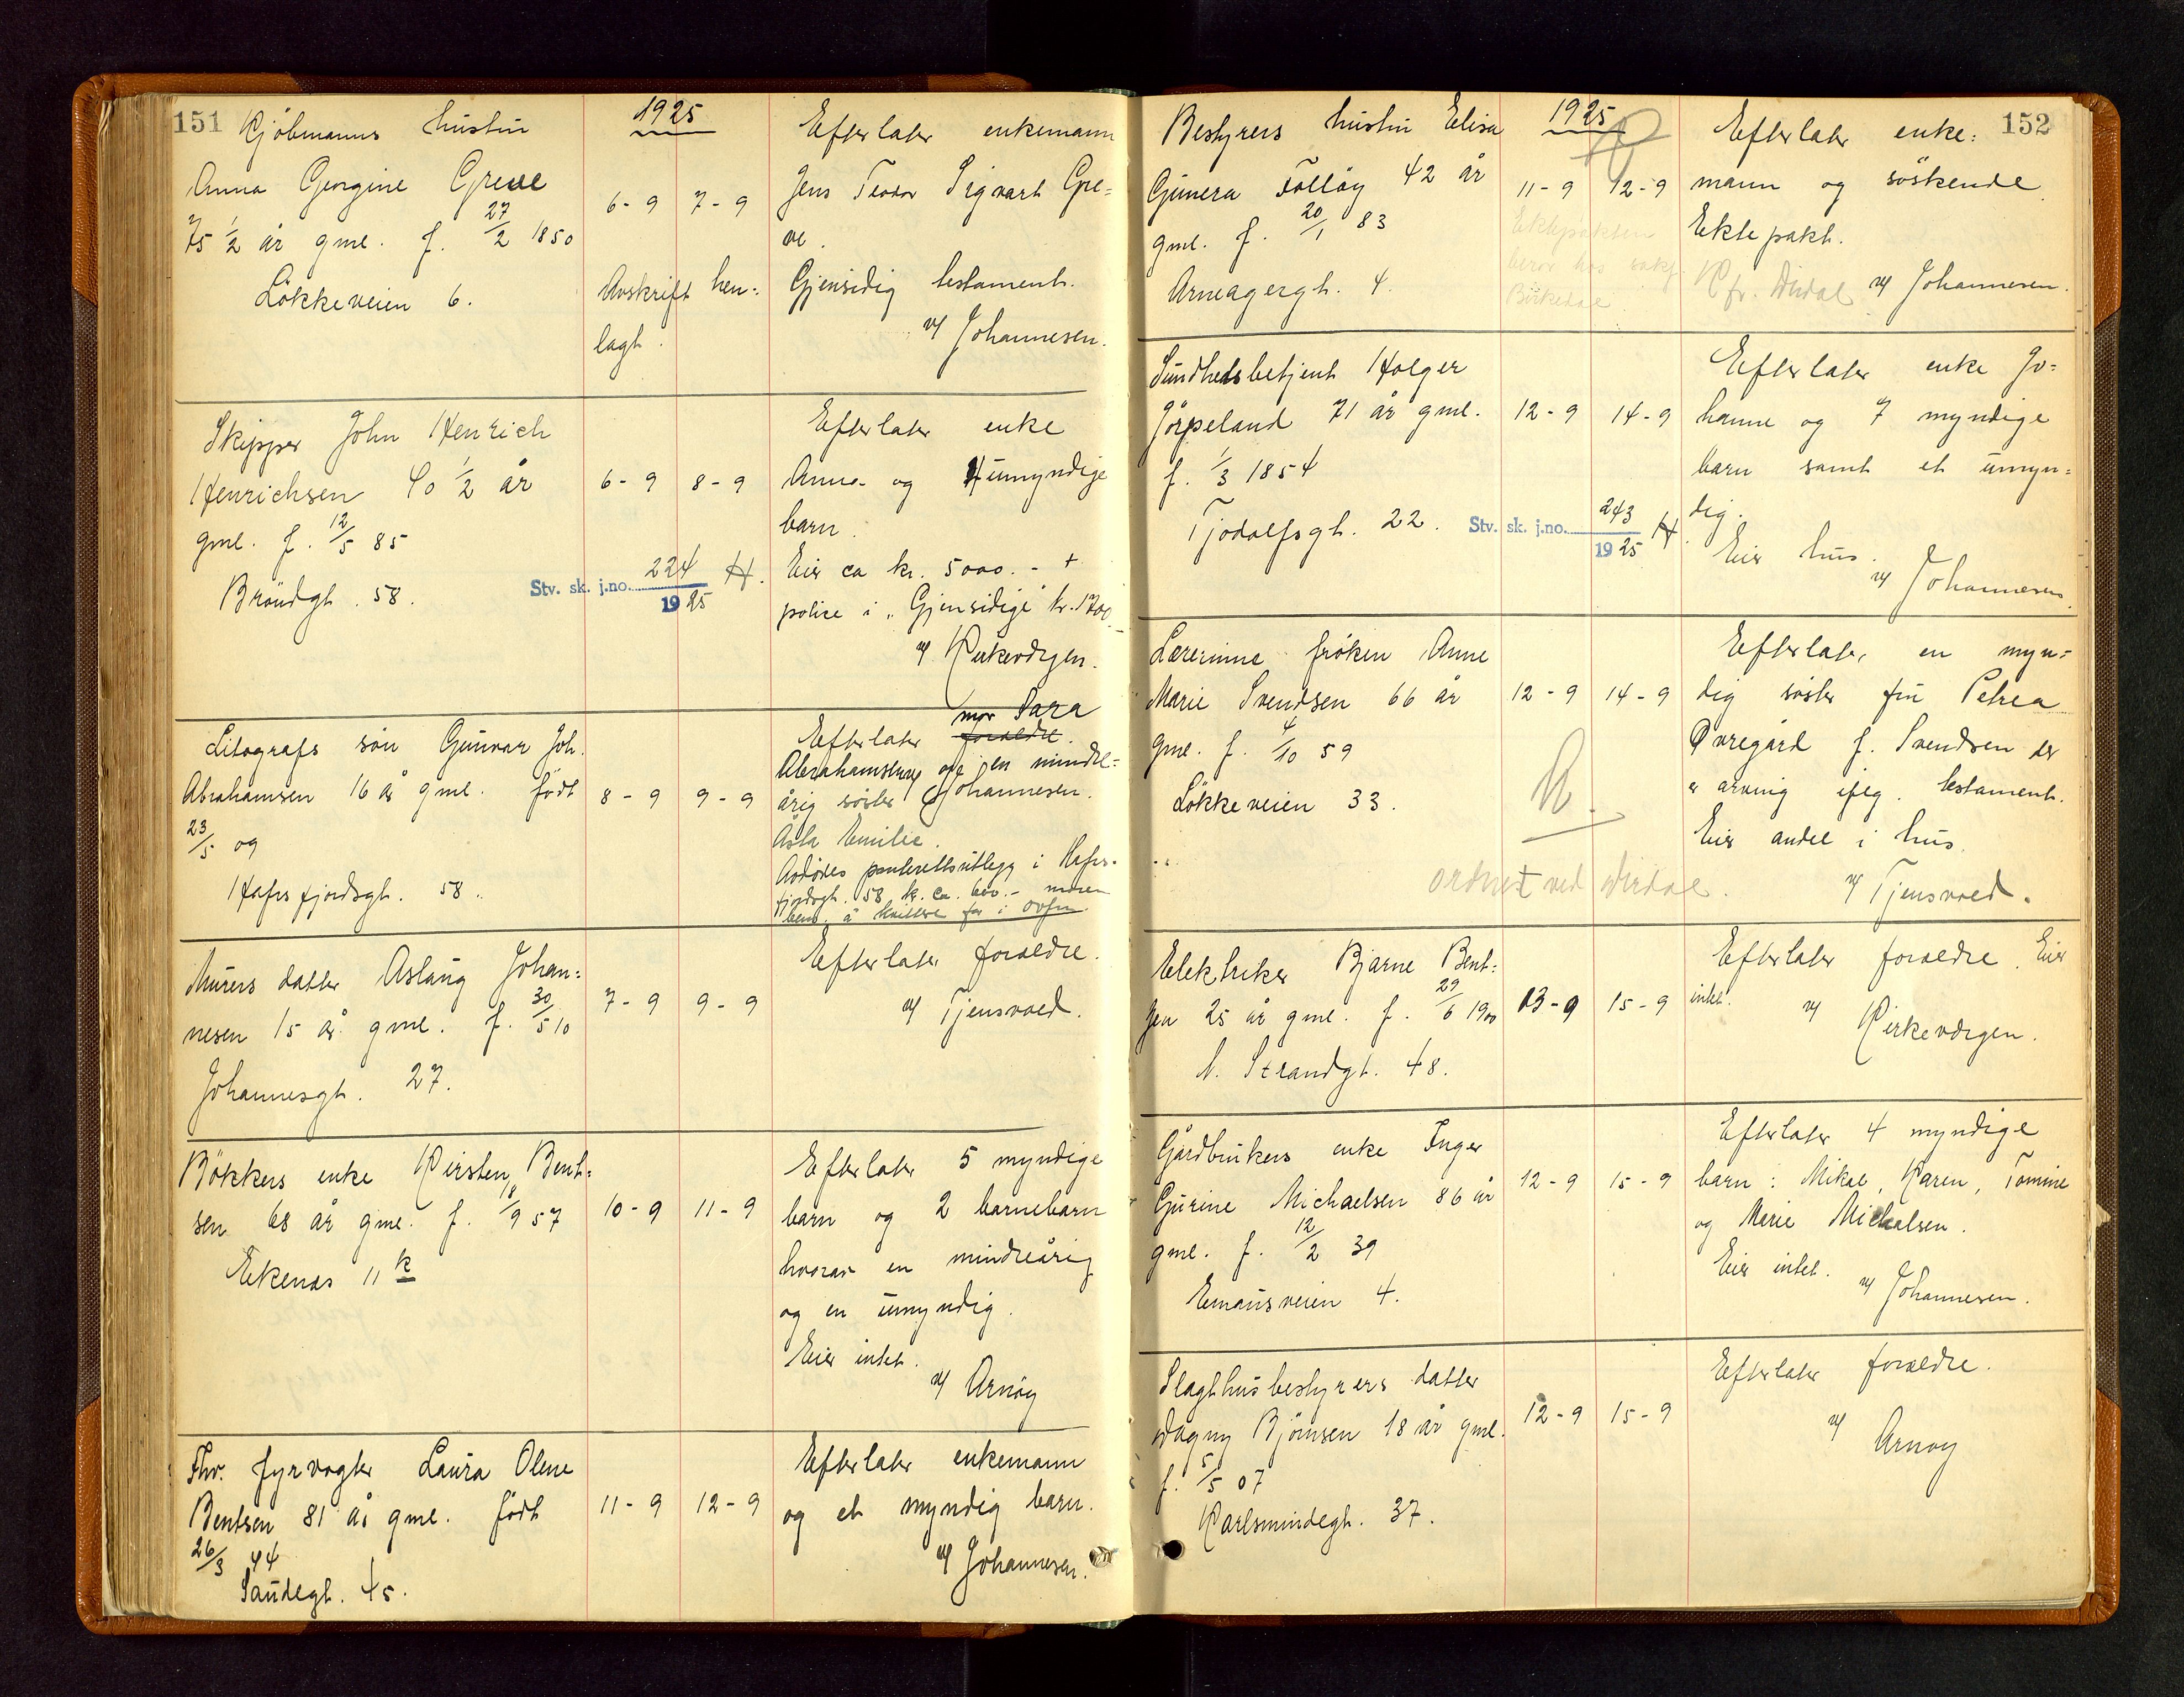 151
1925
Kjöbmanns hustru
Anna Georgine Greve
75 1/2 år gml. f. 27/2 1850
Lökkeveien 6.
6-9 7-9
Avskrift hen-
lagt.
Efterlater enkemann
Jens Teodor Sigvart Gre-
ve.
Gjensidig testament.
v/ Johannesen.
Skipper John Henrich
Henrichsen 40 1/2 år
gml. f. 12/5 85
Bröndgt. 58.
6-9 8-9
Stv. sk. j.no. 224 H.
1925
Efterlater enke
Anna og 4 umyndige
barn.
Eier ca kr. 5000.- +
police i "Gjensidige" kr. 1700.-
v/ Kirkevergen.
Litografs sön Gunvar Joh.
Abrahamsen 16 år gml. födt
23/5 09
Hafrsfjordsgt. 58.
8-9 9-9
mor Sara
Efterlater foreldre.
Abrahamsen og en mindre-
årig söster v/ Johannesen.
Åsta Emilie.
Avdödes panterettsutlegg i Hafrs-
fjordsgt. 58 kr. ca. 600.- moren
bem. å kvittere for i ovfm.
Murers datter Aslaug Johan-
nesen 15 år gml. f. 30/5 10
Johannesgt. 27.
7-9 9-9
Efterlater foreldre.
v/ Tjensvoed.
Bökkers enke Kirsten Bent-
sen 68 år gml. f. 18/9 57
Ekenes 11 k
10-9 11-9
Efterlater 5 myndige
barn og 2 barnebarn
hvorav en mindreårig
og en umyndig.
Eier intet.
v/ Arnöy
Fhv. fyrvogter Laura Olene
Bentsen 81 år gml. födt
26/3 44
Saudegt. 45.
11-9 12-9
Efterlater enkemann
og et myndig barn.
v/ Johannesen.
152
1925
Bestyrers hustru Elisa
Gunera Fallöy 42 år
gml. f. 20/1 83
Arneagergt. 4.
11-9 12-9
Ektepakten
beror hos sakf.
Birkedal
Efterlater enke-
mann og söskende
Ektepakt.
v/ Johannesen.
Sundhedsbetjent Holger
Jörpeland 71 år gml.
f. 1/3 1854
Tjodolfsgt. 22.
12-9 14-9
Stv. sk. j.no. 243 H.
1925
Efterlater enke Jo-
hanne og 7 myndige
barn samt et umyn-
dig.
Eier hus.
v/ Johannesen.
Lærerinne fröken Anne
Marie Svendsen 66 år
gml. f. 4/10 59
Lökkeveien 33.
12-9 14-9
ordnet ved
Efterlater en myn-
dig söster fru Petrea
Øvregård f. Svendsen der
er arving ifölg. testament.
Eier andel i hus.
v/ Tjensvoed.
Elektriker Bjarne Bent-
zen 25 år gml. f. 29/6 1900
N. Strandgt. 48.
13-9 15-9
Efterlater foreldre. Eier
intet.
v/ Kirkevergen.
Gårdbrukers enke Inger
Gurine Michaelsen 86 år
gml. f. 12/2 39
Emausveien 4.
12-9 15-9
Efterlater 4 myndige
barn: Mikal, Karen, Tomine
og Marie Michalsen.
Eier intet.
v/ Johannesen.
Slagthusbestyrers datter
Dagny Björnsen 18 år gml.
f. 5/5 07
Karlsmindegt. 37.
12-9 15-9
Efterlater foreldre.
v/ Arnöy